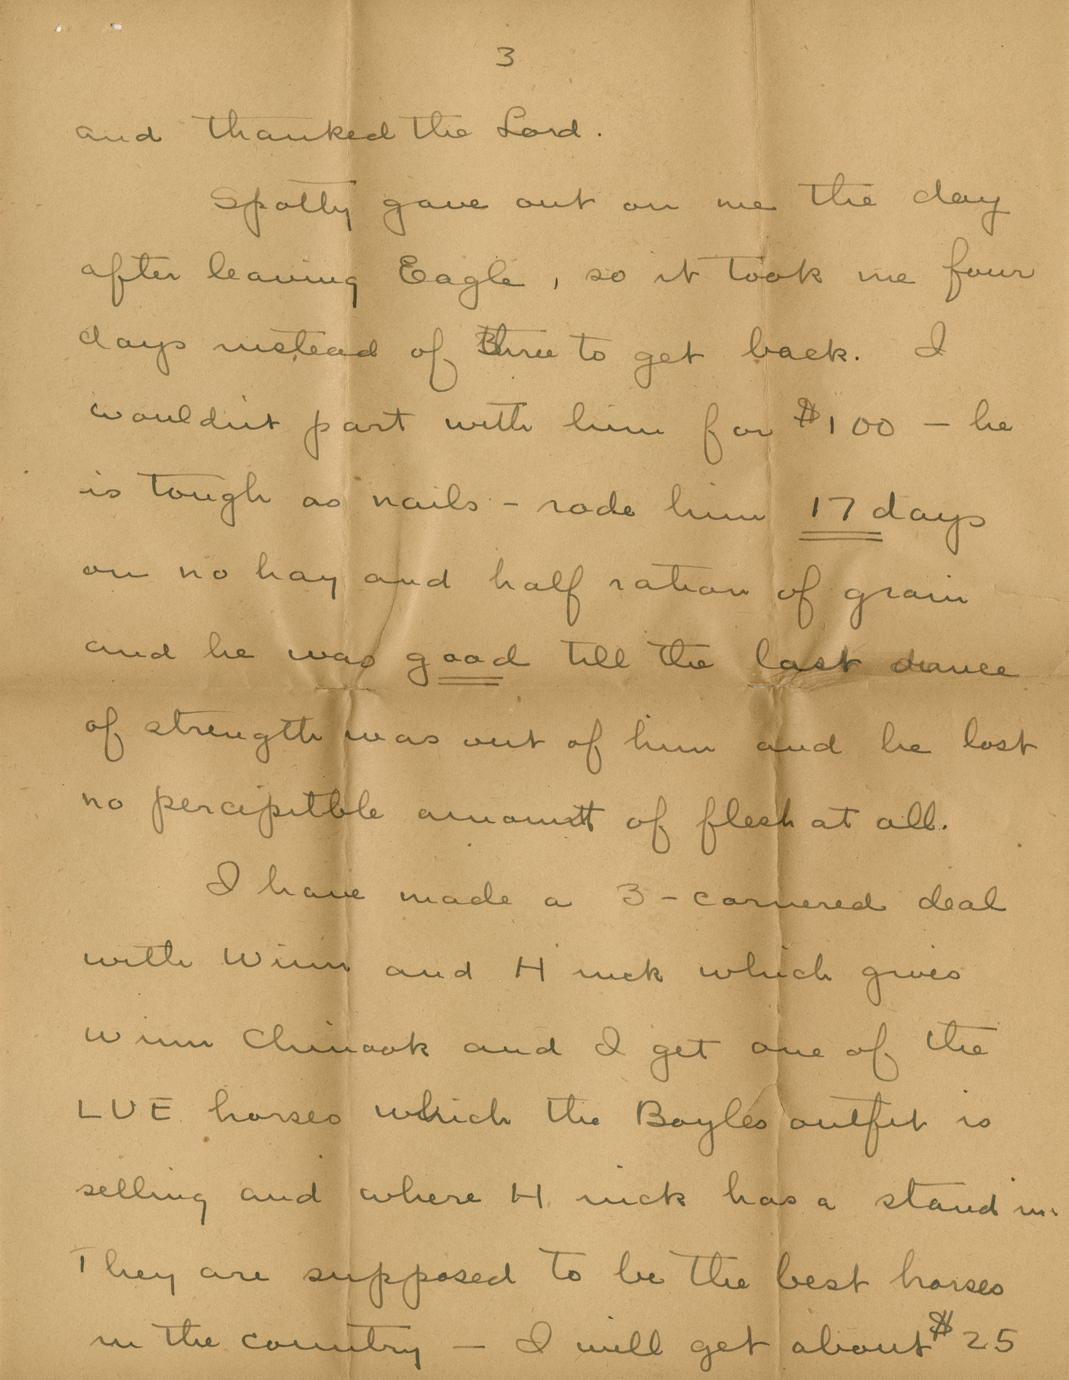 3
and thanked the Lord.
Spotty gave out on me the day
after leaving Eagle, so it took me four
days instead of three to get back. I
wouldn't part with him for $100 - he
is tough as nails - rode him 17 days
on no hay and half ration of grain
and he was good till the last
of strength was out of him and he lost
no percipitble amount of flesh at all.
I have made a 3-cornered deal
with Winn and H nick which gives
Winn Chinook and I get one of the
LUE horses which the Boyles outfit is
selling and where H nick has a stand in.
They are supposed to be the best horses
in the country - I will get about $25